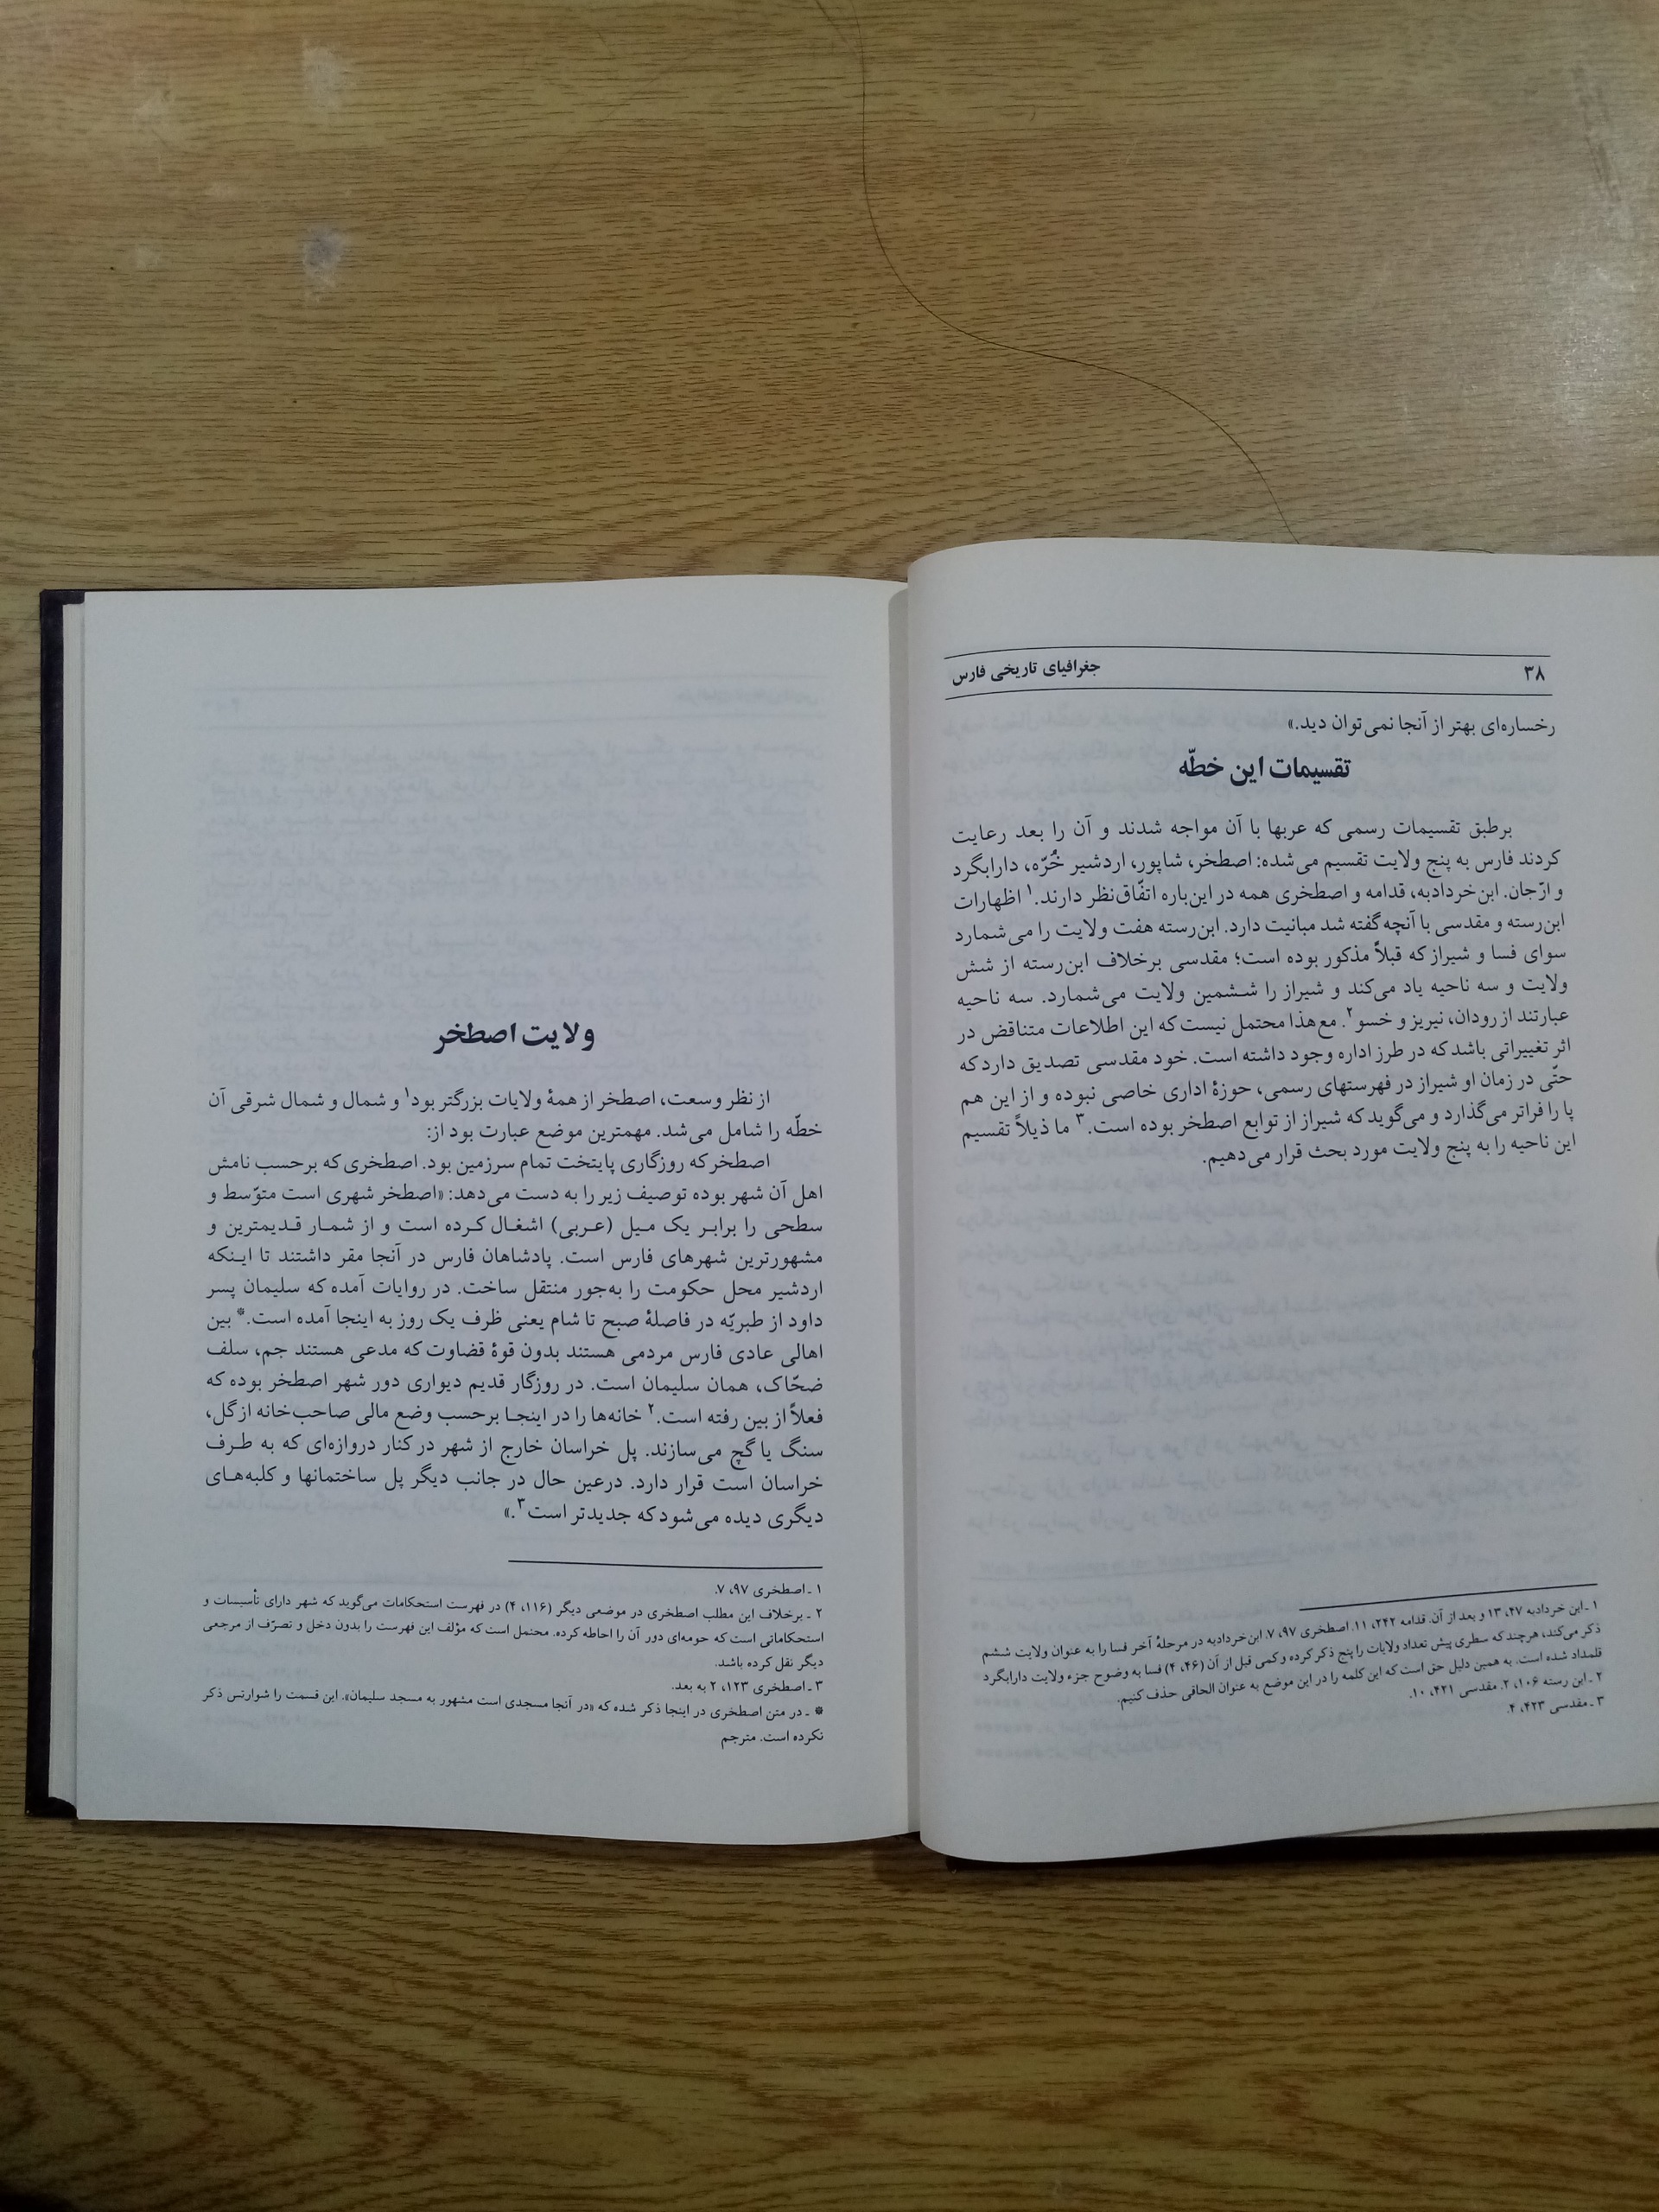 ۳۸
جغرافیای تاریخی فارس
رخساره‌ای بهتر از آنجا نمی‌توان دید.»
تقسیمات این خطّه
برطبق تقسیمات رسمی که عربها با آن مواجه شدند و آن را بعد رعایت
کردند فارس به پنج ولایت تقسیم می‌شده: اصطخر، شاپور، اردشیر خُرّه، دارابگرد
و ارّجان. ابن‌خردادبه، قدامه و اصطخری همه در این‌باره اتفّاق‌نظر دارند.۱ اظهارات
ابن‌رسته و مقدسی با آنچه گفته شد مبانیت دارد. ابن‌رسته هفت ولایت را می‌شمارد
سوای فسا و شیراز که قبلاً مذکور بوده است؛ مقدسی برخلاف ابن‌رسته از شش
ولایت و سه ناحیه یاد می‌کند و شیراز را ششمین ولایت می‌شمارد. سه ناحیه
عبارتند از رودان، نیریز و خسو۲. مع‌هذا محتمل نیست که این اطلاعات متناقض در
اثر تغییراتی باشد که در طرز اداره وجود داشته است. خود مقدسی تصدیق دارد که
حتّی در زمان او شیراز در فهرستهای رسمی، حوزهٔ اداری خاصی نبوده و از این هم
پا را فراتر می‌گذارد و می‌گوید که شیراز از توابع اصطخر بوده است.۳ ما ذیلاً تقسیم
این ناحیه را به پنج ولایت مورد بحث قرار می‌دهیم.
۱ ـ ابن خردادبه ۴۷، ۱۳ و بعد از آن. قدامه ۲۴۲، ۱۱. اصطخری ۹۷، ۷. ابن‌خردادبه در مرحلهٔ آخر فسا را به عنوان ولایت ششم
ذکر می‌کند، هرچند که سطری پیش تعداد ولایات را پنج ذکر کرده و کمی قبل از آن (۴۶، ۴) فسا به وضوح جزء ولایت دارابگرد
قلمداد شده است. به همین دلیل حق است که این کلمه را در این موضع به عنوان الحاقی حذف کنیم.
۲ ـ ابن رسته ۱۰۶، ۲. مقدسی ۴۲۱، ۱۰.
۳ ـ مقدسی ۴۲۳، ۴.
ولایت اصطخر
از نظر وسعت، اصطخر از همهٔ ولایات بزرگتر بود۱ و شمال و شمال شرقی آن
خطّه را شامل می‌شد. مهمترین موضع عبارت بود از:
اصطخر که روزگاری پایتخت تمام سرزمین بود. اصطخری که برحسب نامش
اهل آن شهر بوده توصیف زیر را به دست می‌دهد: «اصطخر شهری است متوّسط و
سطحی را برابر یک میل (عربی) اشغال کرده است و از شمار قدیمترین و
مشهورترین شهرهای فارس است. پادشاهان فارس در آنجا مقر داشتند تا اینکه
اردشیر محل حکومت را به‌جور منتقل ساخت. در روایات آمده که سلیمان پسر
داود از طبریّه در فاصلهٔ صبح تا شام یعنی ظرف یک روز به اینجا آمده است.* بین
اهالی عادی فارس مردمی هستند بدون قوهٔ قضاوت که مدعی هستند جم، سلف
ضحّاک، همان سلیمان است. در روزگار قدیم دیواری دور شهر اصطخر بوده که
فعلاً از بین رفته است.۲ خانه‌ها را در اینجا برحسب وضع مالی صاحب‌خانه از گل،
سنگ یا گچ می‌سازند. پل خراسان خارج از شهر در کنار دروازه‌ای که به طرف
خراسان است قرار دارد. درعین حال در جانب دیگر پل ساختمانها و کلبه‌های
دیگری دیده می‌شود که جدیدتر است۳.»
۱ ـ اصطخری ۹۷، ۷.
۲ ـ برخلاف این مطلب اصطخری در موضعی دیگر (۱۱۶، ۴) در فهرست استحکامات می‌گوید که شهر دارای تأسیسات و
استحکاماتی است که حومه‌ای دور آن را احاطه کرده. محتمل است که مؤلف این فهرست را بدون دخل و تصرّف از مرجعی
دیگر نقل کرده باشد.
۳ ـ اصطخری ۱۲۳، ۲ به بعد.
* ـ در متن اصطخری در اینجا ذکر شده که «در آنجا مسجدی است مشهور به مسجد سلیمان». این قسمت را شوارتس ذکر
نکرده است. مترجم